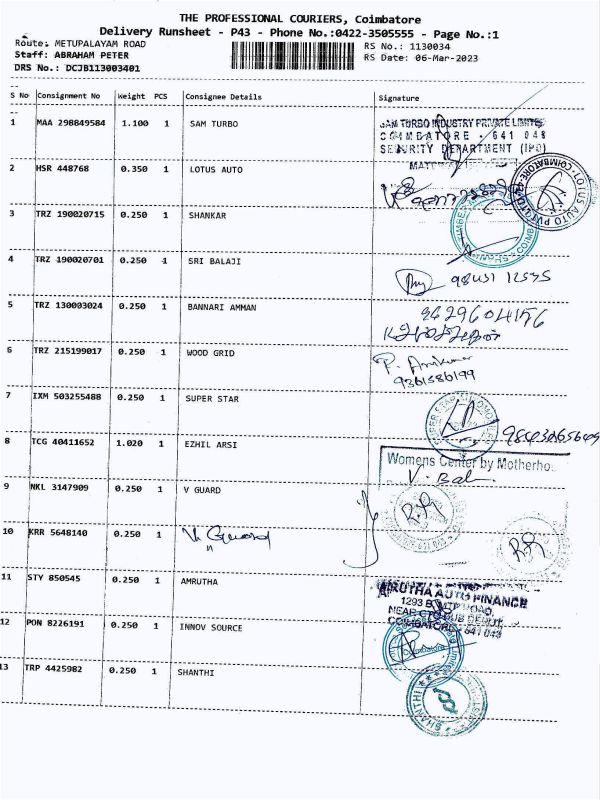 THE PROFESSIONAL COURIERS, Coimbatore
Delivery Runsheet - P43 - Phone No.:0422-3505555 - Page No.:1
Route: METUPALAYAM ROAD RS No.: 1130034
Staff: ABRAHAM PETER RS Date: 06-Mar-2023
DRS No.: DCJB113003401
S No Consignment No Weight PCS Consignee Details Signature
1 MAA 298849584 1.100 1 SAM TURBO
SAM TURBO INDUSTRY PRIVATE LIMITED
COIMBATORE - 641 048
SECURITY DEPARTMENT (IPD)
2 HSR 448768 0.350 1 LOTUS AUTO
LOTUS AUTO PVT LTD COIMBATORE
3 TRZ 190020715 0.250 1 SHANKAR
4 TRZ 190020701 0.250 1 SRI BALAJI
5 TRZ 130003024 0.250 1 BANNARI AMMAN
6 TRZ 215199017 0.250 1 WOOD GRID
9361586199
7 IXM 503255488 0.250 1 SUPER STAR
8 TCG 40411652 1.020 1 EZHIL ARSI
Womens Center by Motherho
V. Bal
9 NKL 3147909 0.250 1 V GUARD
10 KRR 5648140 0.250 1 V Guard
11 STY 850545 0.250 1 AMRUTHA
AMRUTHA AUTO FINANCE
1293 B, MTP ROAD,
COIMBATORE - 641 043
12 PON 8226191 0.250 1 INNOV SOURCE
Coimbatore
13 TRP 4425982 0.250 1 SHANTHI
SHANTHI